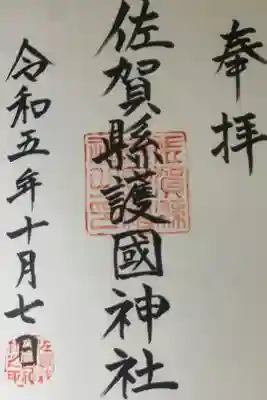 奉拝
佐賀縣護國神社
令和五年十月七日